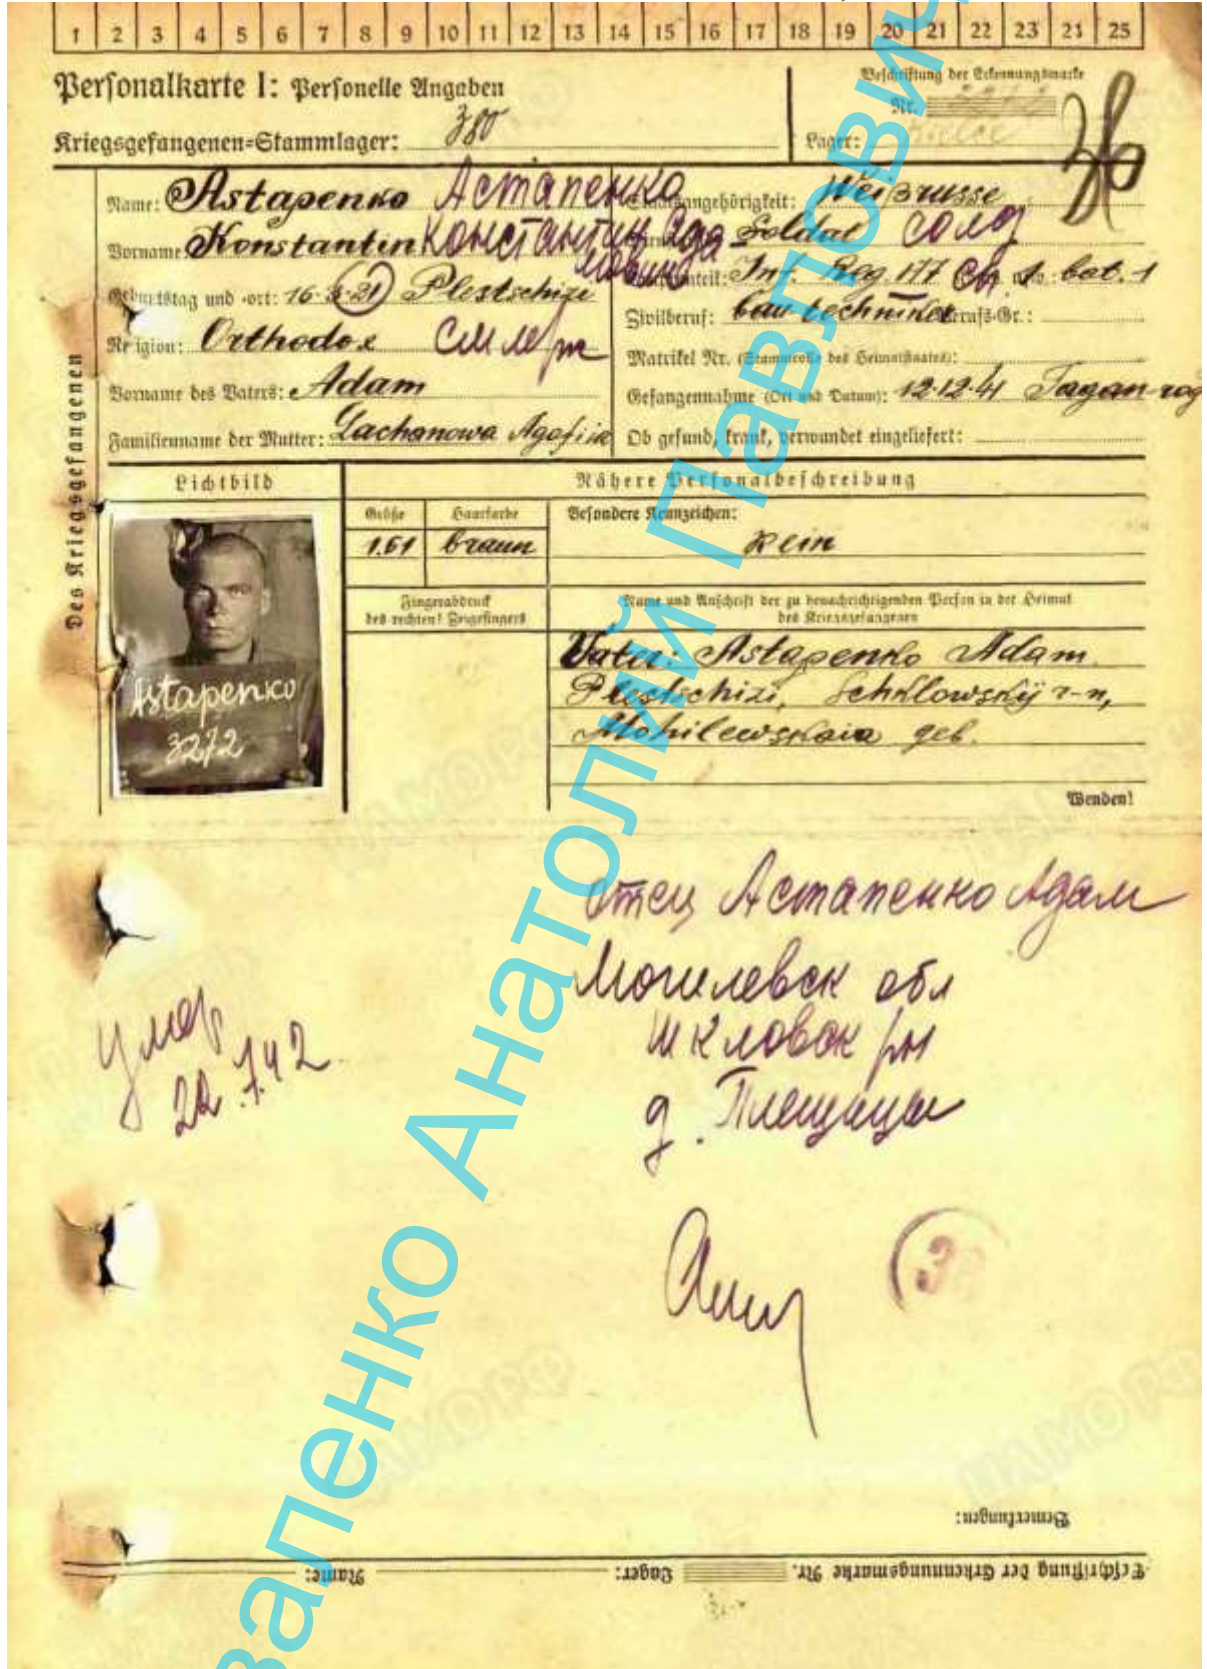 1 2 3 4 5 6 7 8 9 10 11 12 13 14 15 16 17 18 19 20 21 22 23 21 25
Personalkarte I: Personelle Angaben
Kriegsgefangenen=Stammlager: 380
Beschriftung der Erkennungsmarke
Nr.
Lager: Kielce
Des Kriegsgefangenen
Name: Astapenko Астапенко
Vorname: Konstantin Константин Ада
мович
Geburtstag und -ort: 16. 3. 21 Plestschizi
Religion: Orthodox
Vorname des Vaters: Adam
Familienname der Mutter: Lachanowa Agafia
Staatsangehörigkeit: Weißrusse
Soldat солд
Inf. Reg. 177 bat. 1
Zivilberuf: bautechniker Berufs-Gr.:
Matrikel Nr. (Stammrolle des Heimatstaates):
Gefangennahme (Ort und Datum): 12.12.41 Taganrog
Ob gesund, krank, verwundet eingeliefert:
Lichtbild
Nähere Personalbeschreibung
Größe Haarfarbe Besondere Kennzeichen:
1.61 braun Kein
Fingerabdruck
des rechten! Zeigefingers
Name und Anschrift der zu benachrichtigenden Person in der Heimat
des Kriegsgefangenen
Vater: Astapenko Adam
Plestschizi, Schklowskÿ r-n,
Mohilewskaia geb.
Astapenko
3272
Wenden!
отец Астапенко Адам
Могилевск обл
Шкловск рн
д. Плещицы
умер
22.7.42
Bemerkungen:
Beschriftung der Erkennungsmarke Nr. Lager: Name:
валенко Анатолий Павлович
ЦАМО РФ